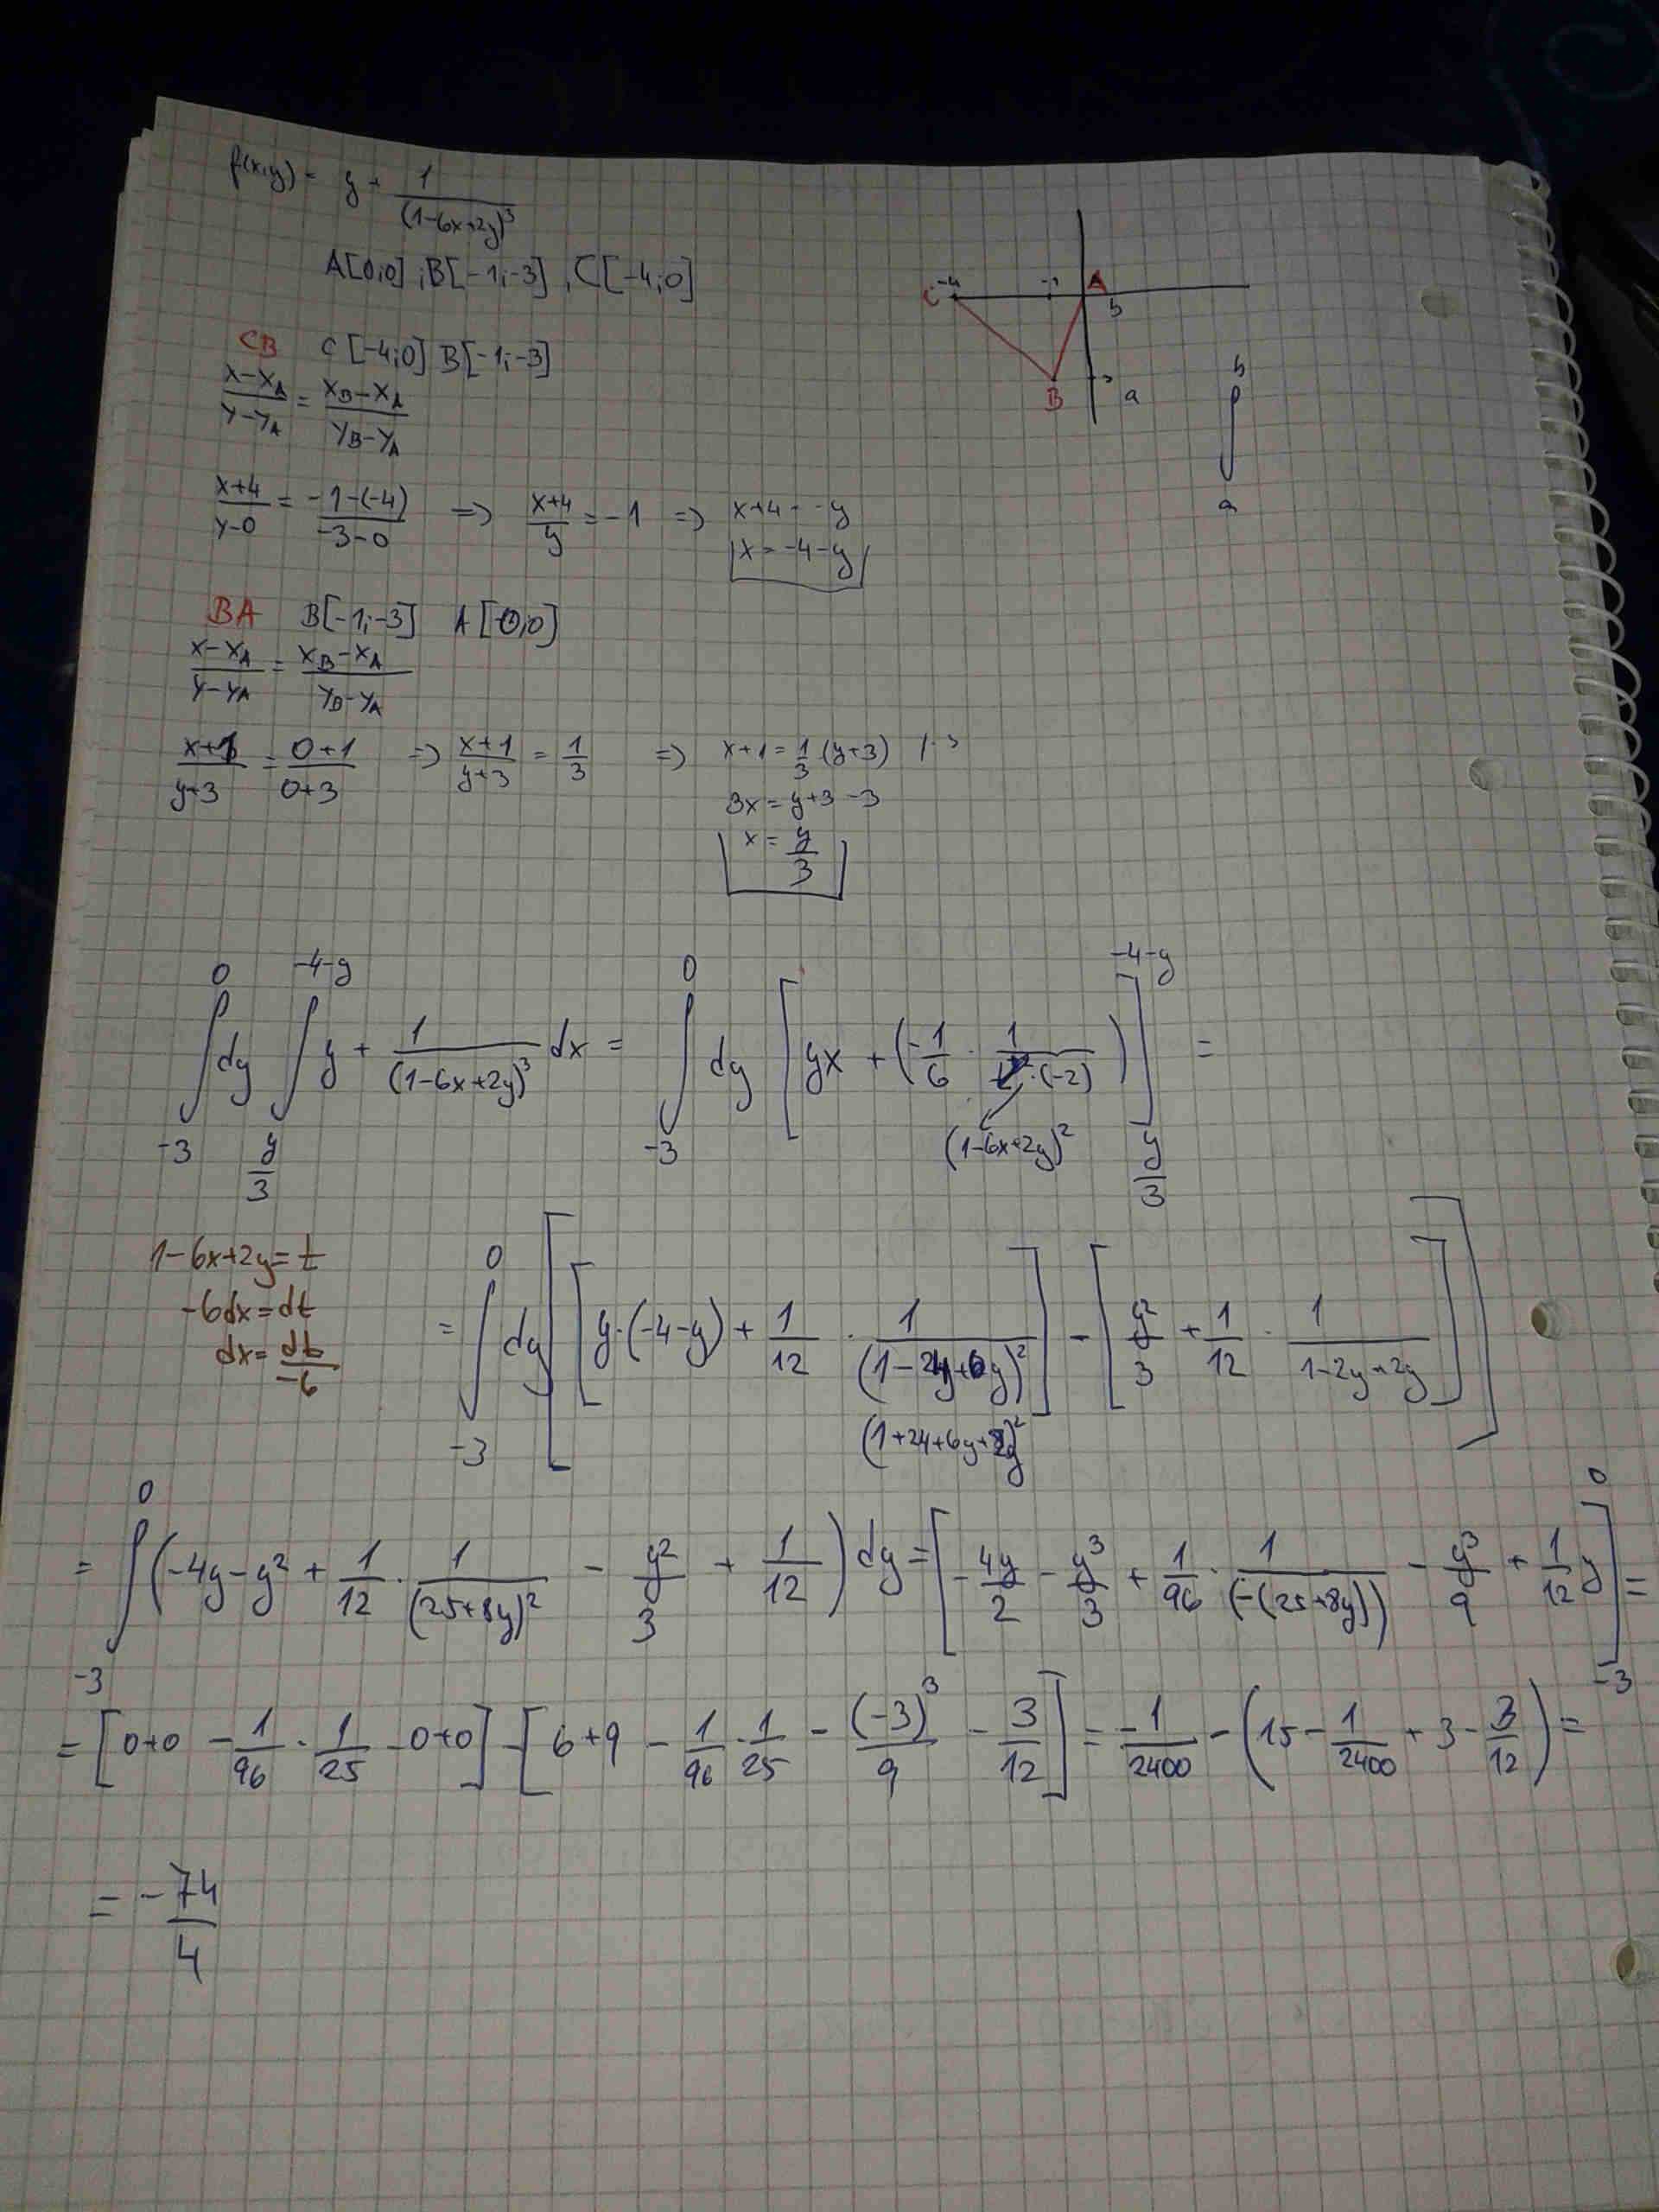 f(x,y) = y + 1/(1-6x+2y)³
A[0;0] ; B[-1;-3] , C[-4;0]
C -4 -1 A b
B -3 a
b
∫
a
CB C[-4;0] B[-1;-3]
(x-x_A)/(y-y_A) = (x_B-x_A)/(y_B-y_A)
(x+4)/(y-0) = (-1-(-4))/(-3-0) => (x+4)/y = -1 => x+4 = -y
x = -4-y
BA B[-1;-3] A[0;0]
(x-x_A)/(y-y_A) = (x_B-x_A)/(y_B-y_A)
(x+1)/(y+3) = (0+1)/(0+3) => (x+1)/(y+3) = 1/3 => x+1 = 1/3 (y+3) /·3
3x = y+3-3
x = y/3
∫_{-3}^{0} dy ∫_{y/3}^{-4-y} y + 1/(1-6x+2y)³ dx = ∫_{-3}^{0} dy [yx + (-1/6 · 1/(t²·(-2)))]_{y/3}^{-4-y} =
(1-6x+2y)²
1-6x+2y = t
-6dx = dt
dx = dt/-6
= ∫_{-3}^{0} dy [[y·(-4-y) + 1/12 · 1/(1-24+6y)²] - [y²/3 + 1/12 · 1/(1-2y+2y)]]
(1+24+6y+2y)²
= ∫_{-3}^{0} (-4y-y² + 1/12 · 1/(25+8y)² - y²/3 + 1/12) dy = [-4y/2 - y³/3 + 1/96 · 1/(-(25+8y)) - y³/9 + 1/12 y]_{-3}^{0} =
= [0+0 - 1/96 · 1/25 - 0+0] - [6+9 - 1/96 · 1/25 - (-3)³/9 - 3/12] = -1/2400 - (15 - 1/2400 + 3 - 3/12) =
= -74/4